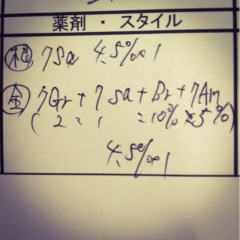 薬剤・スタイル
根 7Sa 4.5%∞1
全 7Gr+7Sa+Br+7Am
(2=1=10%≠5%)
4.5%∞1